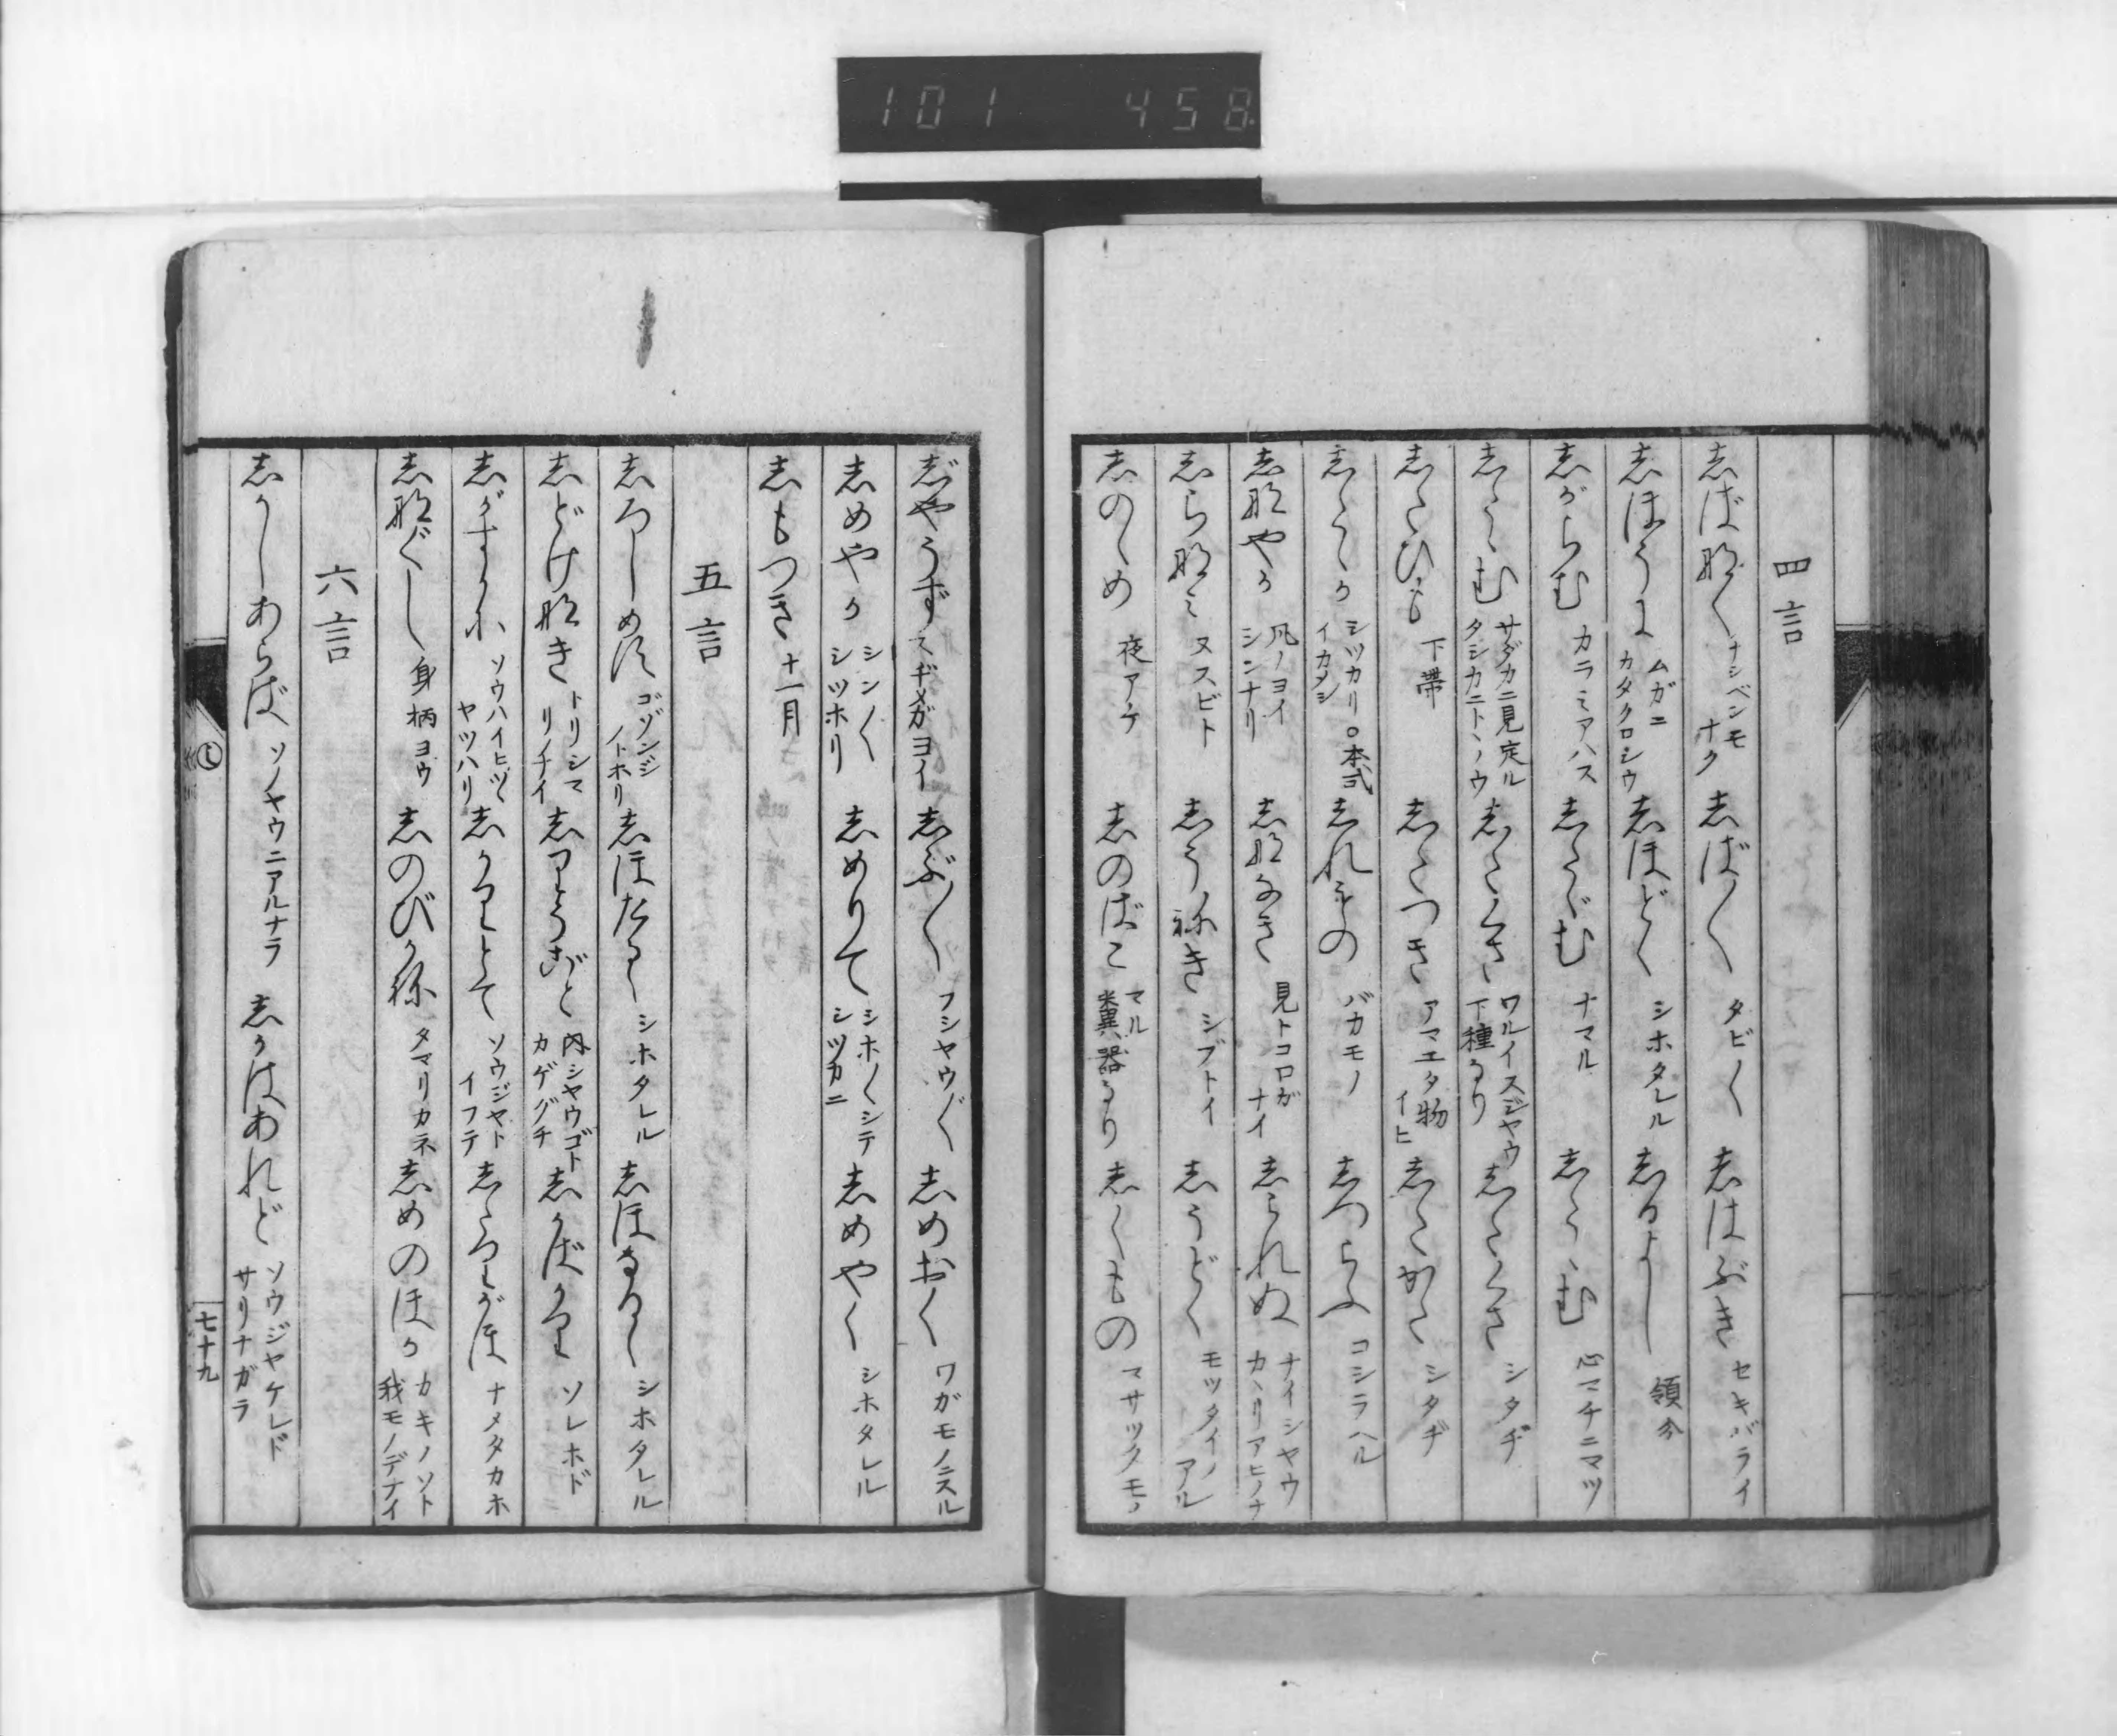 101 458
四言
志ば那く ナシベンモナク 志ば〱 タビ〱 志はぶき セキバライ
志ほうに ムガニカタクロシウ 志ほどく シホタレル 志るよし 領分
志がらむ カラミアハス 志たゞむ ナマル 志たゝむ 心マチニマツ
志たゝむ サダカニ見定ルタシカニトヽノウ 志たくさ ワルイスジヤウ下種なり 志たくさ シタヂ
志たひも 下帯 志たつき アマエタ物イヒ 志たかた シタヂ
志たゝか シツカリイカメシ○本式 志れもの バカモノ 志つらふ コシラヘル
志那やか 風ノヨイシンナリ 志那なき 見トコロガナイ 志られぬ ナイシヤウカヽリアヒノナ
志ら那み ヌスビト 志うねき シブトイ 志うどく モツタイノアル
志のゝめ 夜アケ 志のばこ マル糞器なり 志くもの マサツクモノ
志゛やうず テギメガヨイ 志ぶ〱 フシヤウ〲 志めおく ワガモノニスル
志めやか シン〱シツホリ 志めりて シホ〱シテシツカニ 志めやく シホタレル
志もつき 十一月
五言
志ろしめす ゴゾンジノトホリ 志ほたるゝ シホタレル 志ほなるゝ シホタレル
志どけ那き トリシマリノナイ 志りうごと 内シヤウゴトカゲグチ 志かばかり ソレホド
志かすかに ソウハイヒツヽヤツハリ 志かりとて ソウジヤトイフテ 志たりがほ ナメタカホ
志那ぐゝし 身柄ヨウ 志のびかね タマリカネ 志めのほか カキノソト我モノデナイ
六言
志かしあらば ソノヤウニアルナラ 志かはあれど ソウジヤケレドサリナガラ
七十九